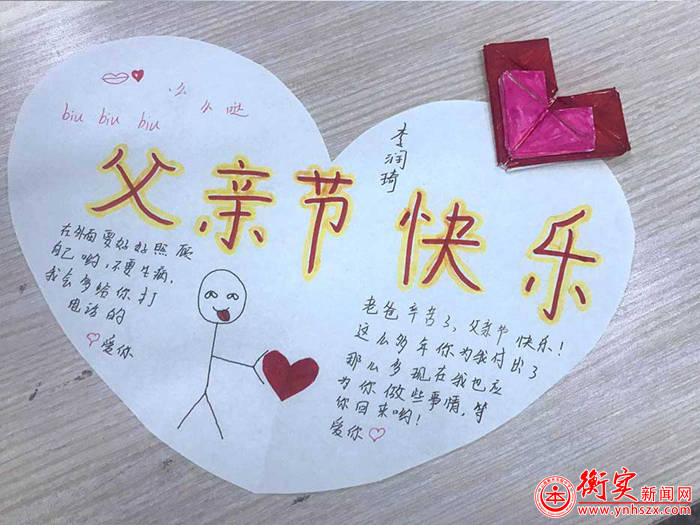 么么哒
biu biu biu
李润琦
父亲节快乐
在外面要好好照顾
自己哟，不要生病，
我会多给你打
电话的
爱你
老爸辛苦了，父亲节快乐！
这么多年你为我付出了
那么多现在我也应
为你做些事情，等
你回来哟！
爱你
衡实新闻网
www.ynhszx.com